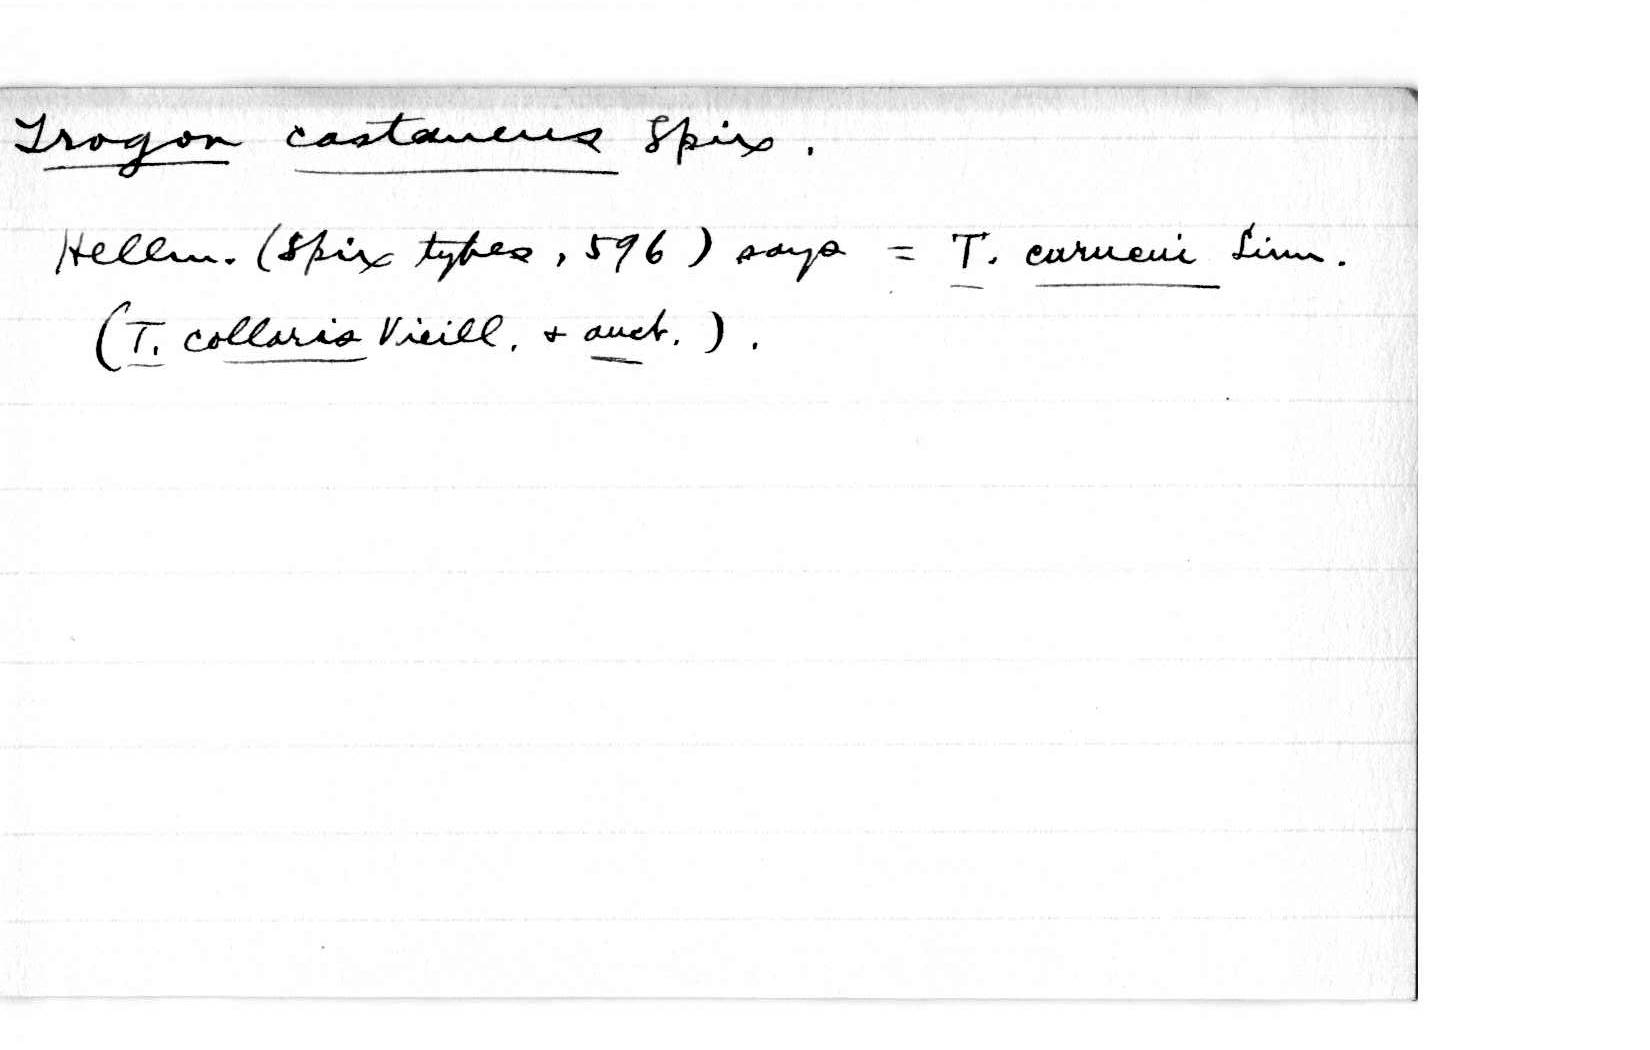 Trogon castaneus Spix.
Hellm. (Spix types, 596) says = T. curucui Linn.
(T. collaris Vieill. + auct.).